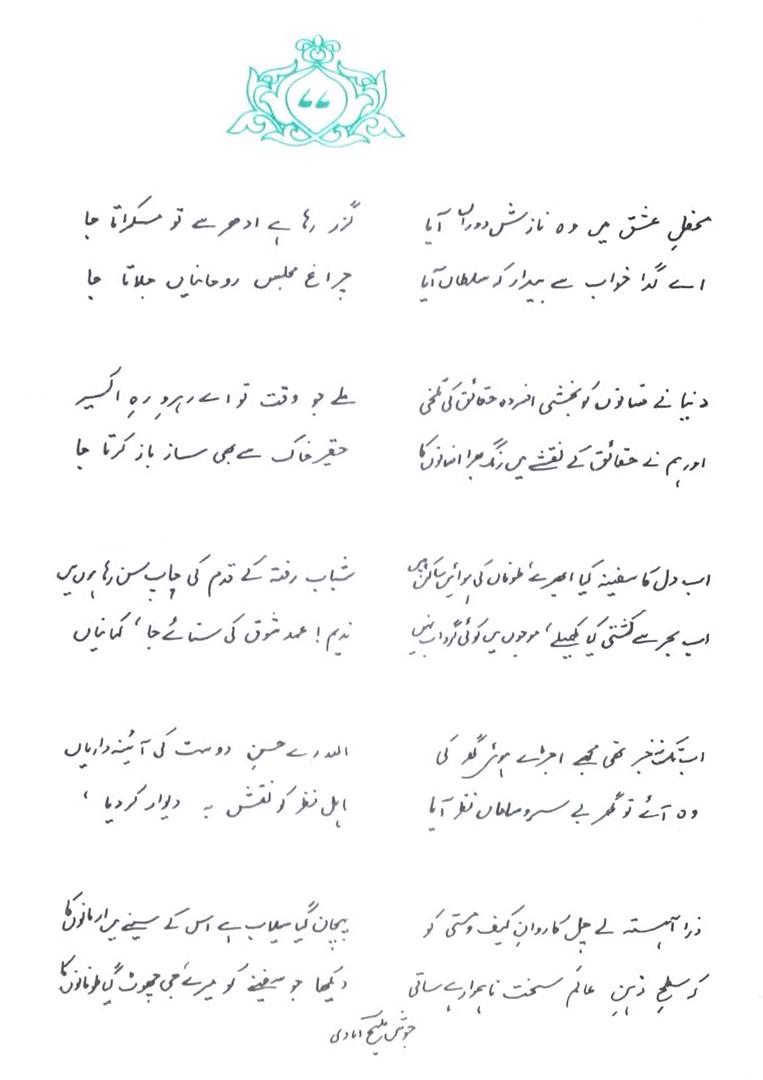 “
محفلِ عشق میں وہ نازشِ دوراں آیا
اے گدا خواب سے بیدار کہ سلطاں آیا
گزر رہا ہے ادھر سے تو مسکراتا جا
چراغِ مجلسِ روحانیاں جلاتا جا
دنیا نے فسانوں کو بخشی افسردہ حقائق کی تلخی
اور ہم نے حقائق کے نقشے میں رنگ بھرا افسانوں کا
ملے جو وقت تو اے رہروِ رہِ اکسیر
حقیر خاک سے بھی ساز باز کرتا جا
اب دل کا سفینہ کیا ابھرے، طوفاں کی ہوائیں ساکن ہیں
اب بحر سے کشتی کیا کھیلے، موجوں میں کوئی گرداب نہیں
شبابِ رفتہ کے قدم کی چاپ سن رہا ہوں میں
ندیم! عہدِ شوق کی سنائے جا، کہانیاں
اب تک نہ خبر تھی مجھے اجڑے ہوئے گھر کی
وہ آئے تو گھر بے سر و ساماں نظر آیا
اللہ رے حسنِ دوست کی آئینہ داریاں
اہلِ نظر کو نقش بہ دیوار کر دیا،
ذرا آہستہ لے چل کاروانِ کیف و مستی کو
کہ سطحِ ذہنِ عالم سخت ناہموار ہے ساقی
پہچان گیا سیلاب ہے اس کے سینے میں ارمانوں کا
دیکھا جو سفینے کو میرے جی چھوٹ گیا طوفانوں کا
جوش ملیح آبادی